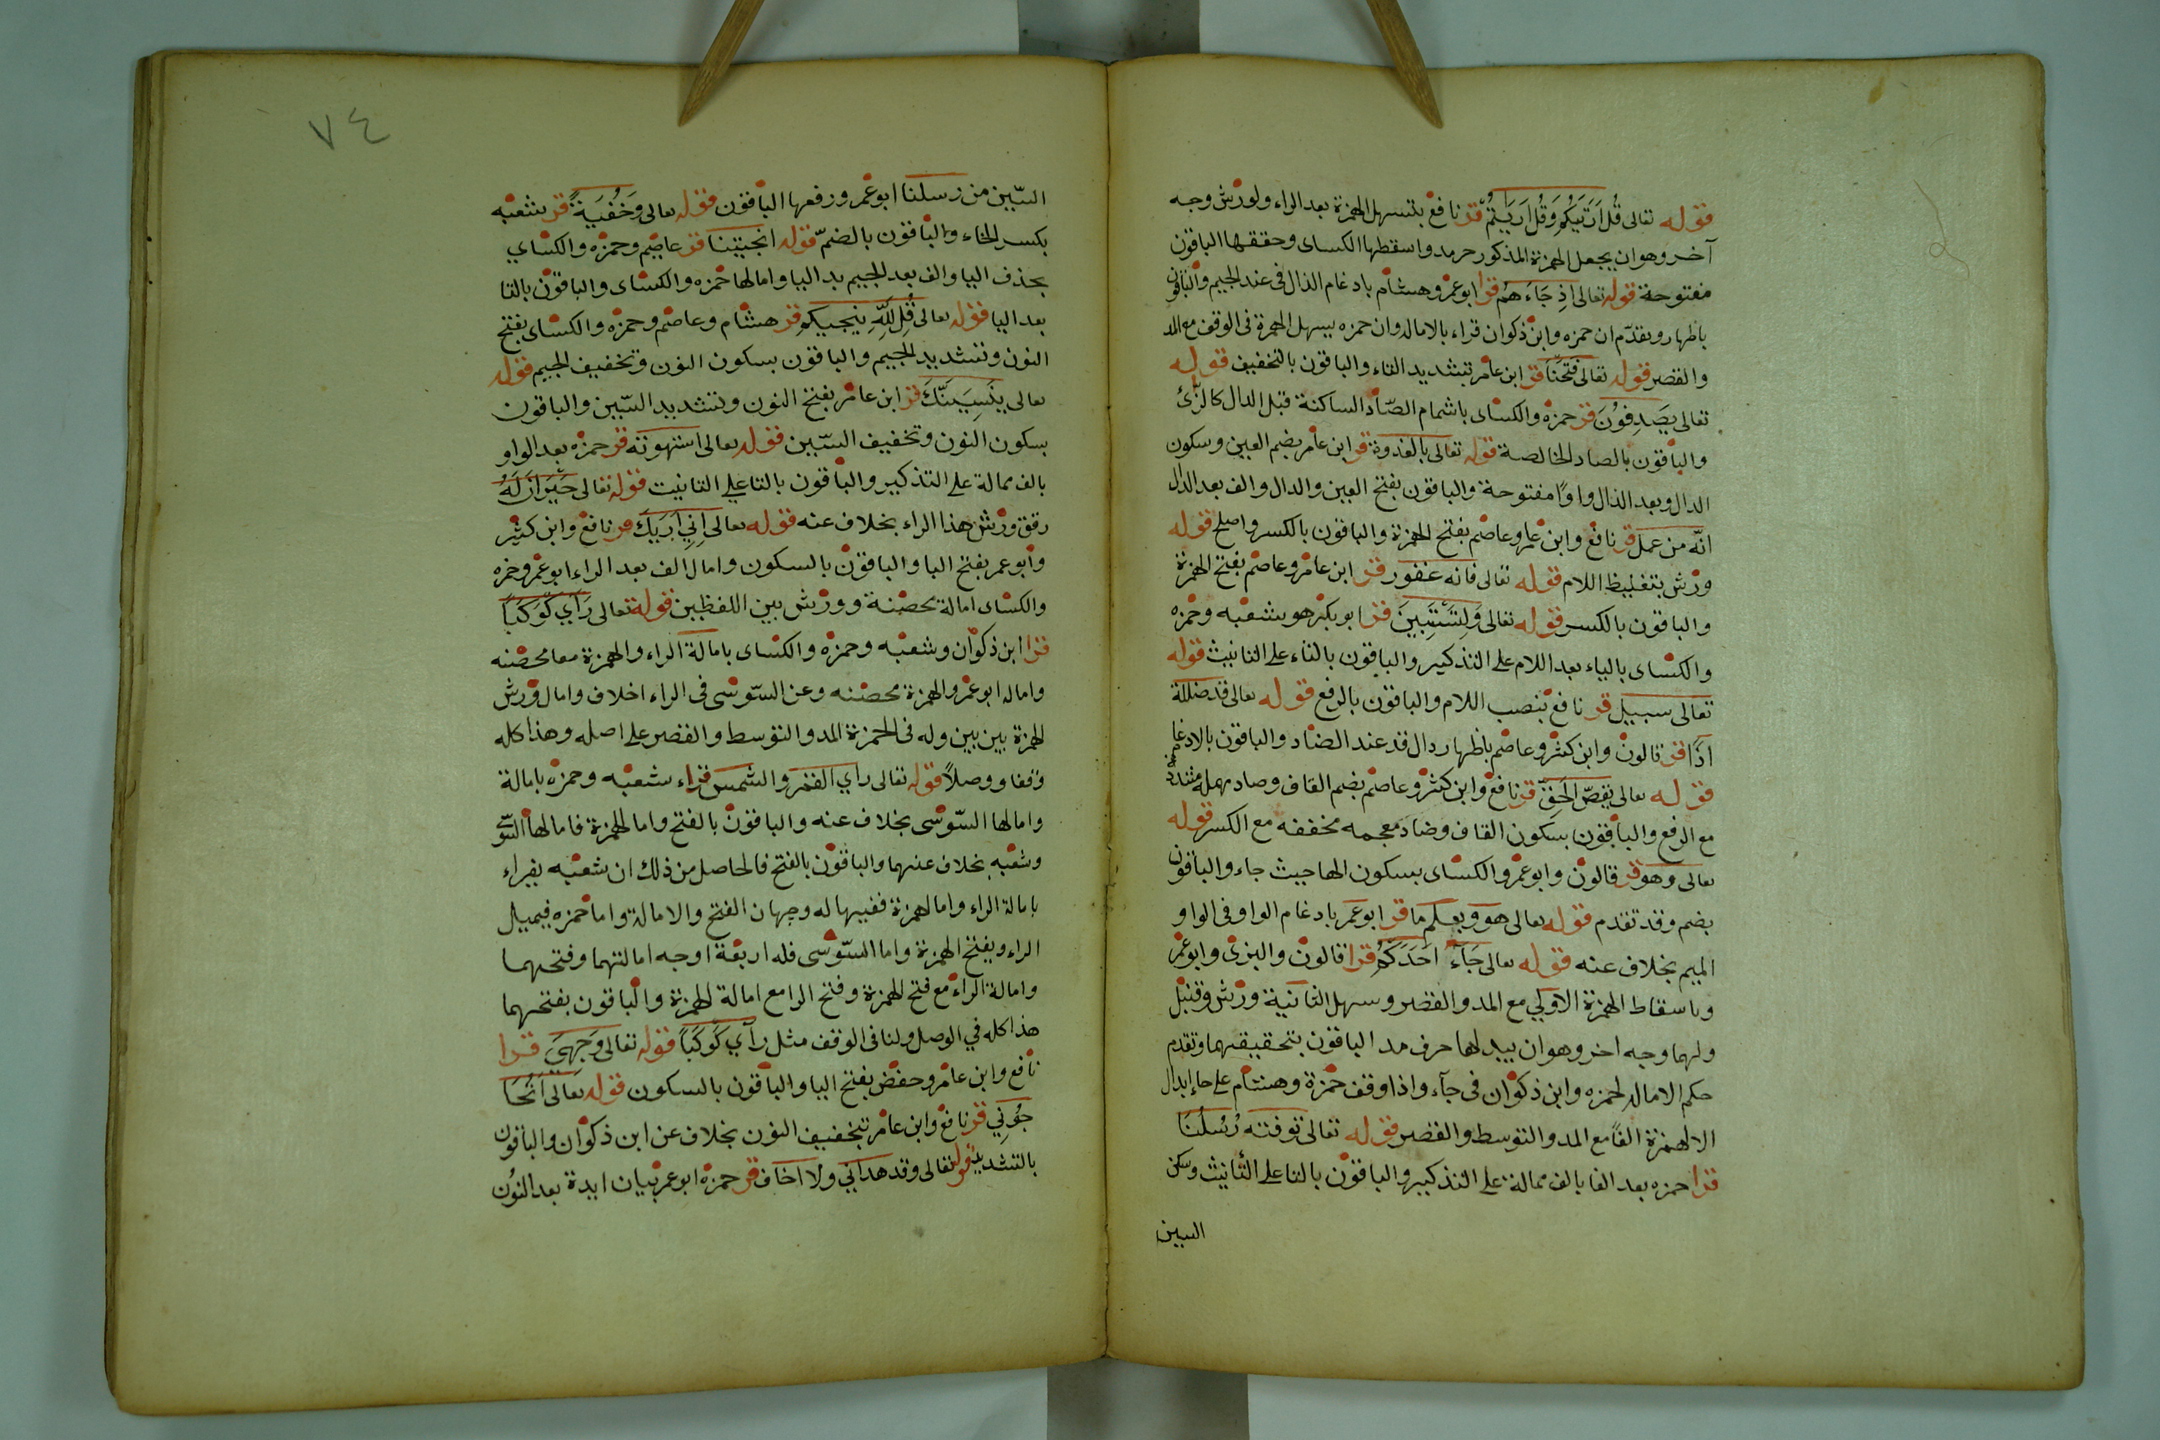 قوله تعالى قُل اَرَيتَكُم وَقُل اَرَيتُم قرا نافع بتسهل الهمزة بعد الراء ولورش وجه
آخر وهوان يجعل الهمزة المذكور حرمد واسقطها الكساى وحققها الباقون
مفتوحة قوله تعالى اذ جَاءَهُم قرا ابوعمرو وهشام بادغام الذال فى عند الجيم والباقون
باظهار وتقدم ان حمزه وابن ذكوان قراء بالاماله وان حمزه يسهل الهمزة فى الوقف مع المد
والقصر قوله تعالى فَتَحنَا قرا ابن عامر تبشديد التاء والباقون بالتخفيف قوله
تعالى يَصدِفُونَ قر حمزه والكساى باشمام الصاد الساكنة قبل الدال كالزاى
والباقون بالصاد الخالصة قوله تعالى بالغدوة قر ابن عامر بضم الغين وسكون
الدال وبعد الدال واوًا مفتوحة والباقون بفتح الغين والدال والف بعد الدال
انّه من عمل قر نافع وابن عامر وعاصم بفتح الهمزة والباقون بالكسر واصلح قوله
ورش بتغليظ اللام قوله تعالى فانه غفور قر ابن عامر وعاصم بفتح الهمزة
والباقون بالكسر قوله تعالى وَلِتَستَبِينَ قرا ابوبكر هو شعبه وحمزه
والكساى بالياء بعد اللام على التذكير والباقون بالتاء على التانيث قوله
تعالى سبيل قر نافع بنصب اللام والباقون بالرفع قوله تعالى قد ضللة
اذًا قر قالون وابن كثير وعاصم باظهار دال قد عند الضاد والباقون بالادغام
قوله تعالى يقصّ الحَقّ قر نافع وابن كثير وعاصم بضم القاف وصاد مهمله مشدده
مع الرفع والباقون بسكون القاف وضاد معجمه مخففه مع الكسر قوله
تعالى وهو قر قالون وابوعمرو والكساى بسكون الها حيث جاء والباقون
بضم وقد تقدم قوله تعالى هو ويعلم ما قرا ابوعمر بادغام الواو فى الواو
الميم بخلاف عنه قوله تعالى جَآءَ اَحَدَكُم قرا قالون والبزى وابوعمر
وباسقاط الهمزة الاولى مع المد والقصر وسهل الثانية ورش وقنبل
ولهما وجه اخر وهوان يبدلها حرف مد الباقون بتحقيقهما وتقدم
حكم الاماله لحمزه وابن ذكوان فى جآء واذا وقف حمزة وهشام على جاء ابدال
الالهمزة الفًا مع المد والتوسط والقصر قوله تعالى توفته رُسُلُنَا
قرا حمزه بعد الفا بالف ممالة على التذكير والباقون بالتا على التانيث وسكن
السين
٧٤
السّين من رسلنا ابوعمر ورفعها الباقون قوله تعالى وَخُفيَةً قر شعبه
بكسر الخاء والباقون بالضمّ قوله انجيتنا قر عاصم وحمزه والكساي
بحذف اليا والف بعد الجيم بد اليا وامالها حمزه والكساى والباقون بالتا
بعد اليا قوله تعالى قُلِ للَّهِ ينجيكم قر هشام وعاصم وحمزه والكساى بفتح
النون وتشديد الجيم والباقون بسكون النون وتخفيف الجيم قوله
تعالى يُنسِيَنَّكَ قر ابن عامر بفتح النون وتشديد السّين والباقون
بسكون النون وتخفيف السّين قوله تعالى استهوته قر حمزه بعد الواو
بالف ممالة على التذكير والباقون بالتا على التانيث قوله تعالى حَيرَان لَهُ
رقق ورش هذا الراء بخلاف عنه قوله تعالى اِنِى اَريك قر نافع وابن كثير
وابوعمر بفتح اليا والباقون بالسكون وامال الف بعد الراء ابوعمرو حمزه
والكساى امالة محضنة وورش بين اللفظين قوله تعالى رَأى كَوكَبًا
قرا ابن ذكوان وشعبه وحمزه والكساى بامالة الراء والهمزة معا محضنه
واماله ابوعمرو الهمزة محضنه وعن السّوسى فى الراء اخلاف وامال ورش
الهمزة بين بين وله فى الحمزة المد والتوسط والقصر على اصله وهذا كله
وقفا ووصلاً قوله تعالى رأى القمر والشمس قراء شعبه وحمزه بامالة
وامالها السّوسى بخلاف عنه والباقون بالفتح واما الهمزة فامالها السّو
وشعبه بخلاف عنهما والباقون بالفتح فالحاصل من ذلك ان شعبه يقراء
بامالة الراء واما لهمزة ففيها له وجهان الفتح والامالة واما حمزه فيميل
الراء ويفتح الهمزة واما السّوسى فله اربعة اوجه امالتهما وفتحهما
وامالة الراء مع فتح الهمزة وفتح الرا مع امالة الهمزة والباقون بفتحهما
هذا كله في الوصل ولنا فى الوقف مثل رأى كَوكَبًا قوله تعالى وَجهِىَ قرا
نافع وابن عامر وحفص بفتح اليا والباقون بالسكون قوله تعالى اَتُحَا
جُونِي قر نافع وابن عامر تبخفيف النون بخلاف عن ابن ذكوان والباقون
بالتشديد قوله تعالى وقد هداني ولا اخاف قر حمزه ابوعمر بيان ايدة بعد النون